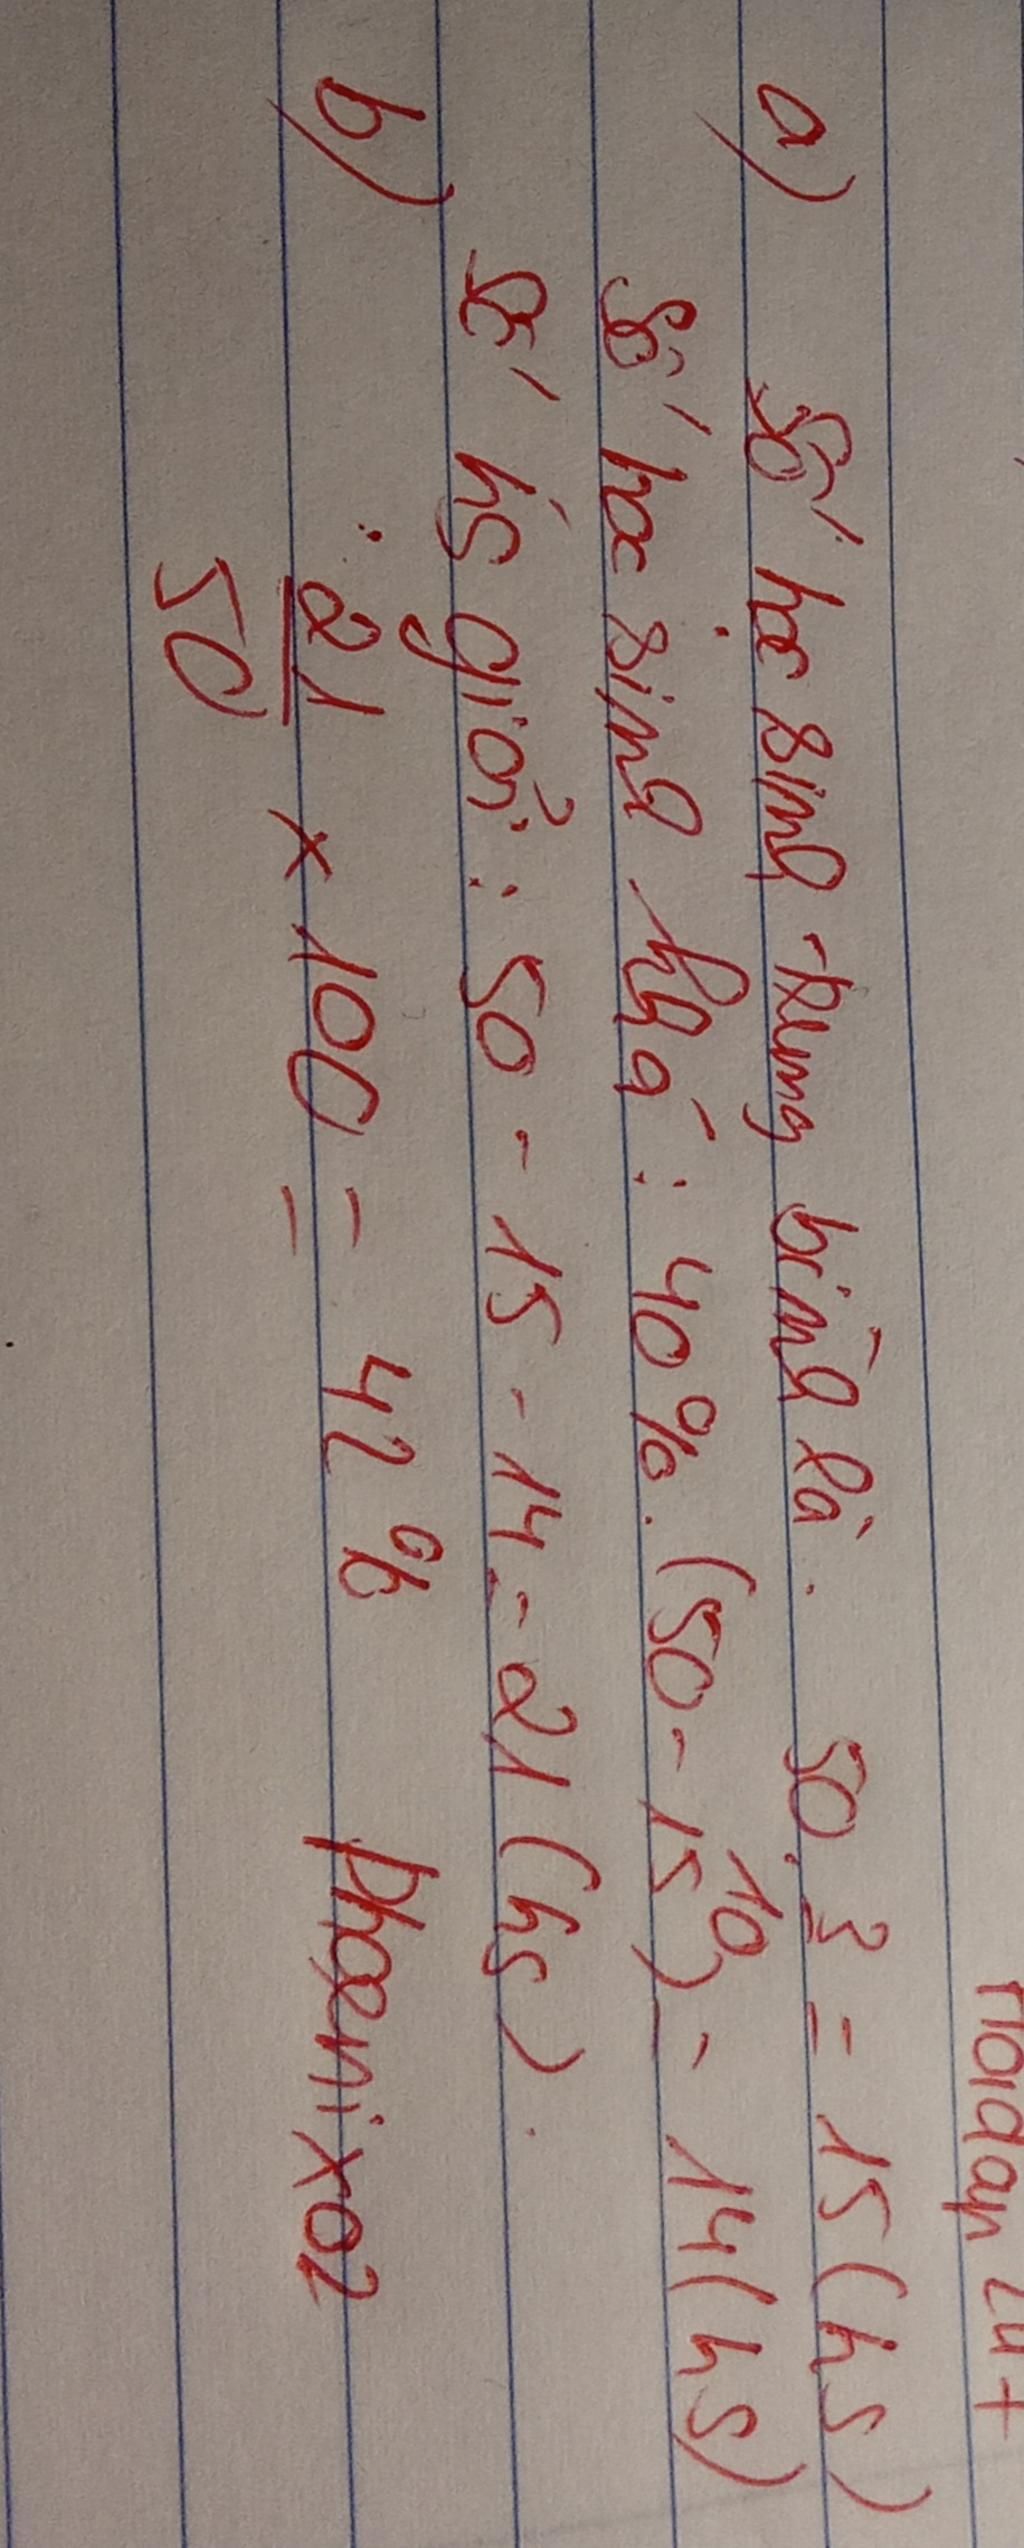 Hoidap 24+
a) Số học sinh trung bình là: 50. 3/10 = 15 (hs)
Số học sinh khá: 40%. (50 - 15) = 14 (hs)
Số hs giỏi: 50 - 15 - 14 = 21 (hs).
b) : 21/50 × 100 = 42 %
Phoenix02